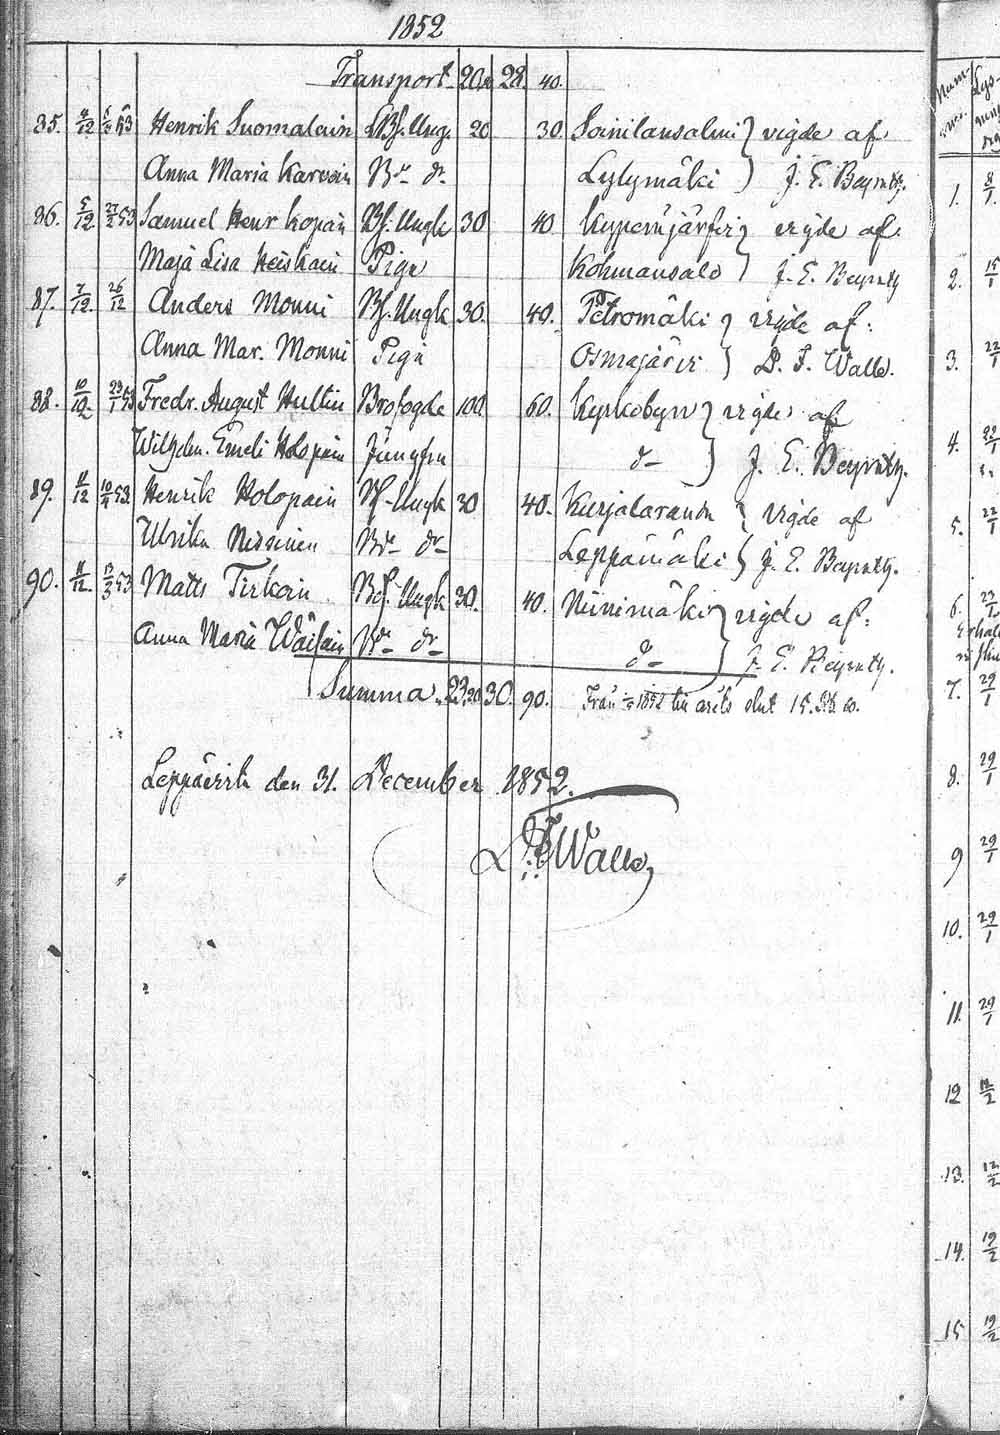 1852
Transport 28. 40.
85. 4/12 53 Henrik Suomalain Bf. Ung. 20 30. Soinilansalmi vigde af
Anna Maria Karvain Bde dr. Lylymäki J. E. Beyrath.
86. 5/12 27/2 53 Samuel Henr Kopain Bf. Ungk 30 40 vigde af
Maja Lisa Heiskain Piga Kohmansalo J. E. Beyrath
87. 7/12. 26/12 Anders Monni Bf. Ungk 30. 40. Petromäki vigde af:
Anna Mar. Monni Piga Osmajärvi D. F. Walle.
88. 10/12. 23/1 53 Fredr. August Hultin Brofogde 100. 60. Kyrkobyn vigde af
Wilhelm. Emeli Holopain Jungfru d- J. E. Beyrath.
89. 11/12 10/4 53. Henrik Holopain Bf-Ungk 30 40. Kurjalaranda vigde af
Ulrika Nissinen Bde dr Leppämäki J. E. Beyrath.
90. 11/12. 13/3 53 Matts Tirkain Bf. Ungk 30. 40. Niinimäki vigde af:
Anna Maria Wäisain Bde dr d- J. E. Beyrath.
Summa 23,20 30. 90. Från 1852 till årets slut 15.
Leppävirta den 31. December 1852.
D. F. Walle
1. 8/1
2. 15/1
3. 22/1
4. 22/1
5. 22/1
6. 23/1
7. 29/1
8. 29/1
9 29/1
10. 29/1
11. 29/1
12 12/2
13. 12/2
14. 19/2
15 19/2